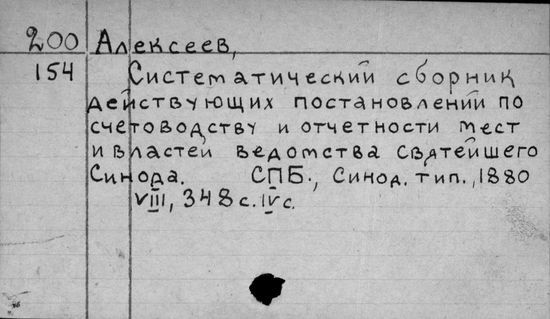 200 Алексеев,
154 Систематический сборник
действующих постановлений по
счетоводству и отчетности мест
и властей ведомства святейшего
Синода. СПБ., Синод. тип., 1880
VIII, 348 с. IV с.